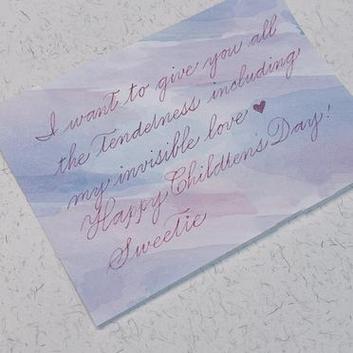 I want to give you all
the tenderness including
my invisible love ♥
Happy Children's Day!
Sweetie